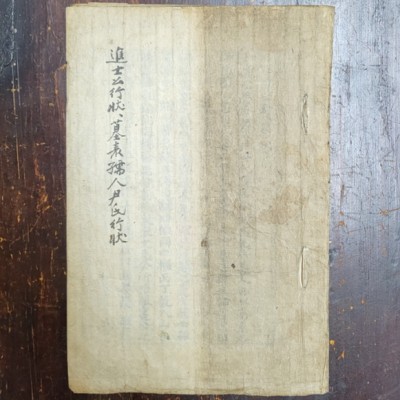 進士公行狀、墓表孺人尹氏行狀